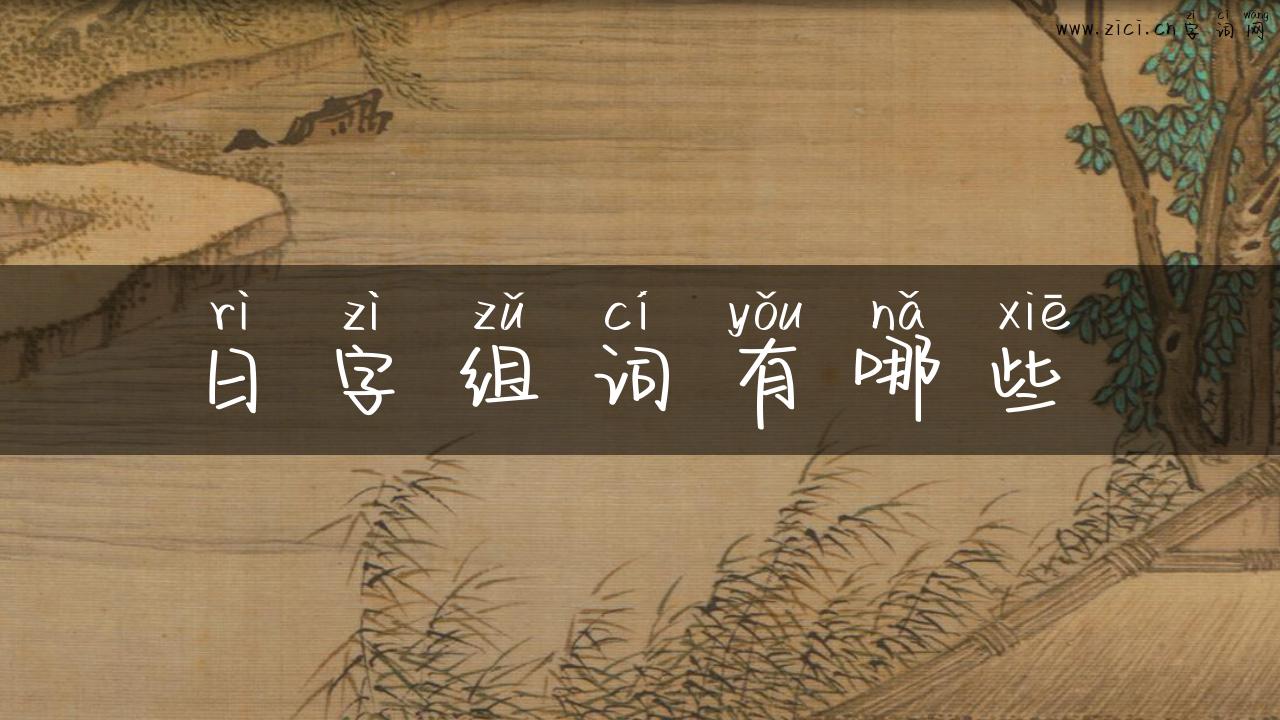 zì cí wǎng
www.zici.cn字词网
rì zì zǔ cí yǒu nǎ xiē
日字组词有哪些